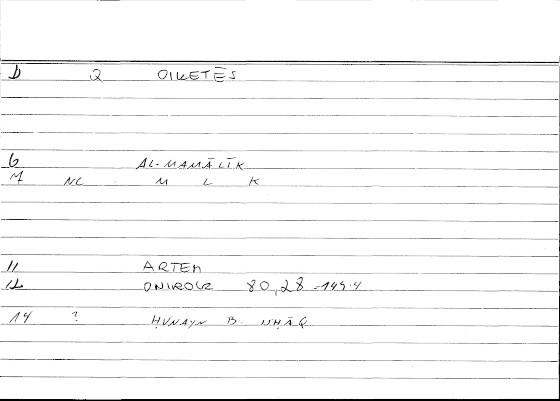 D 2 OIKETĒS
6 AL-MAMĀLĪK
7 NC M L K
11 ARTEM
12 ONIROCR 80,28 = 149.4
14 ? ḤUNAYN B. ISḤĀQ